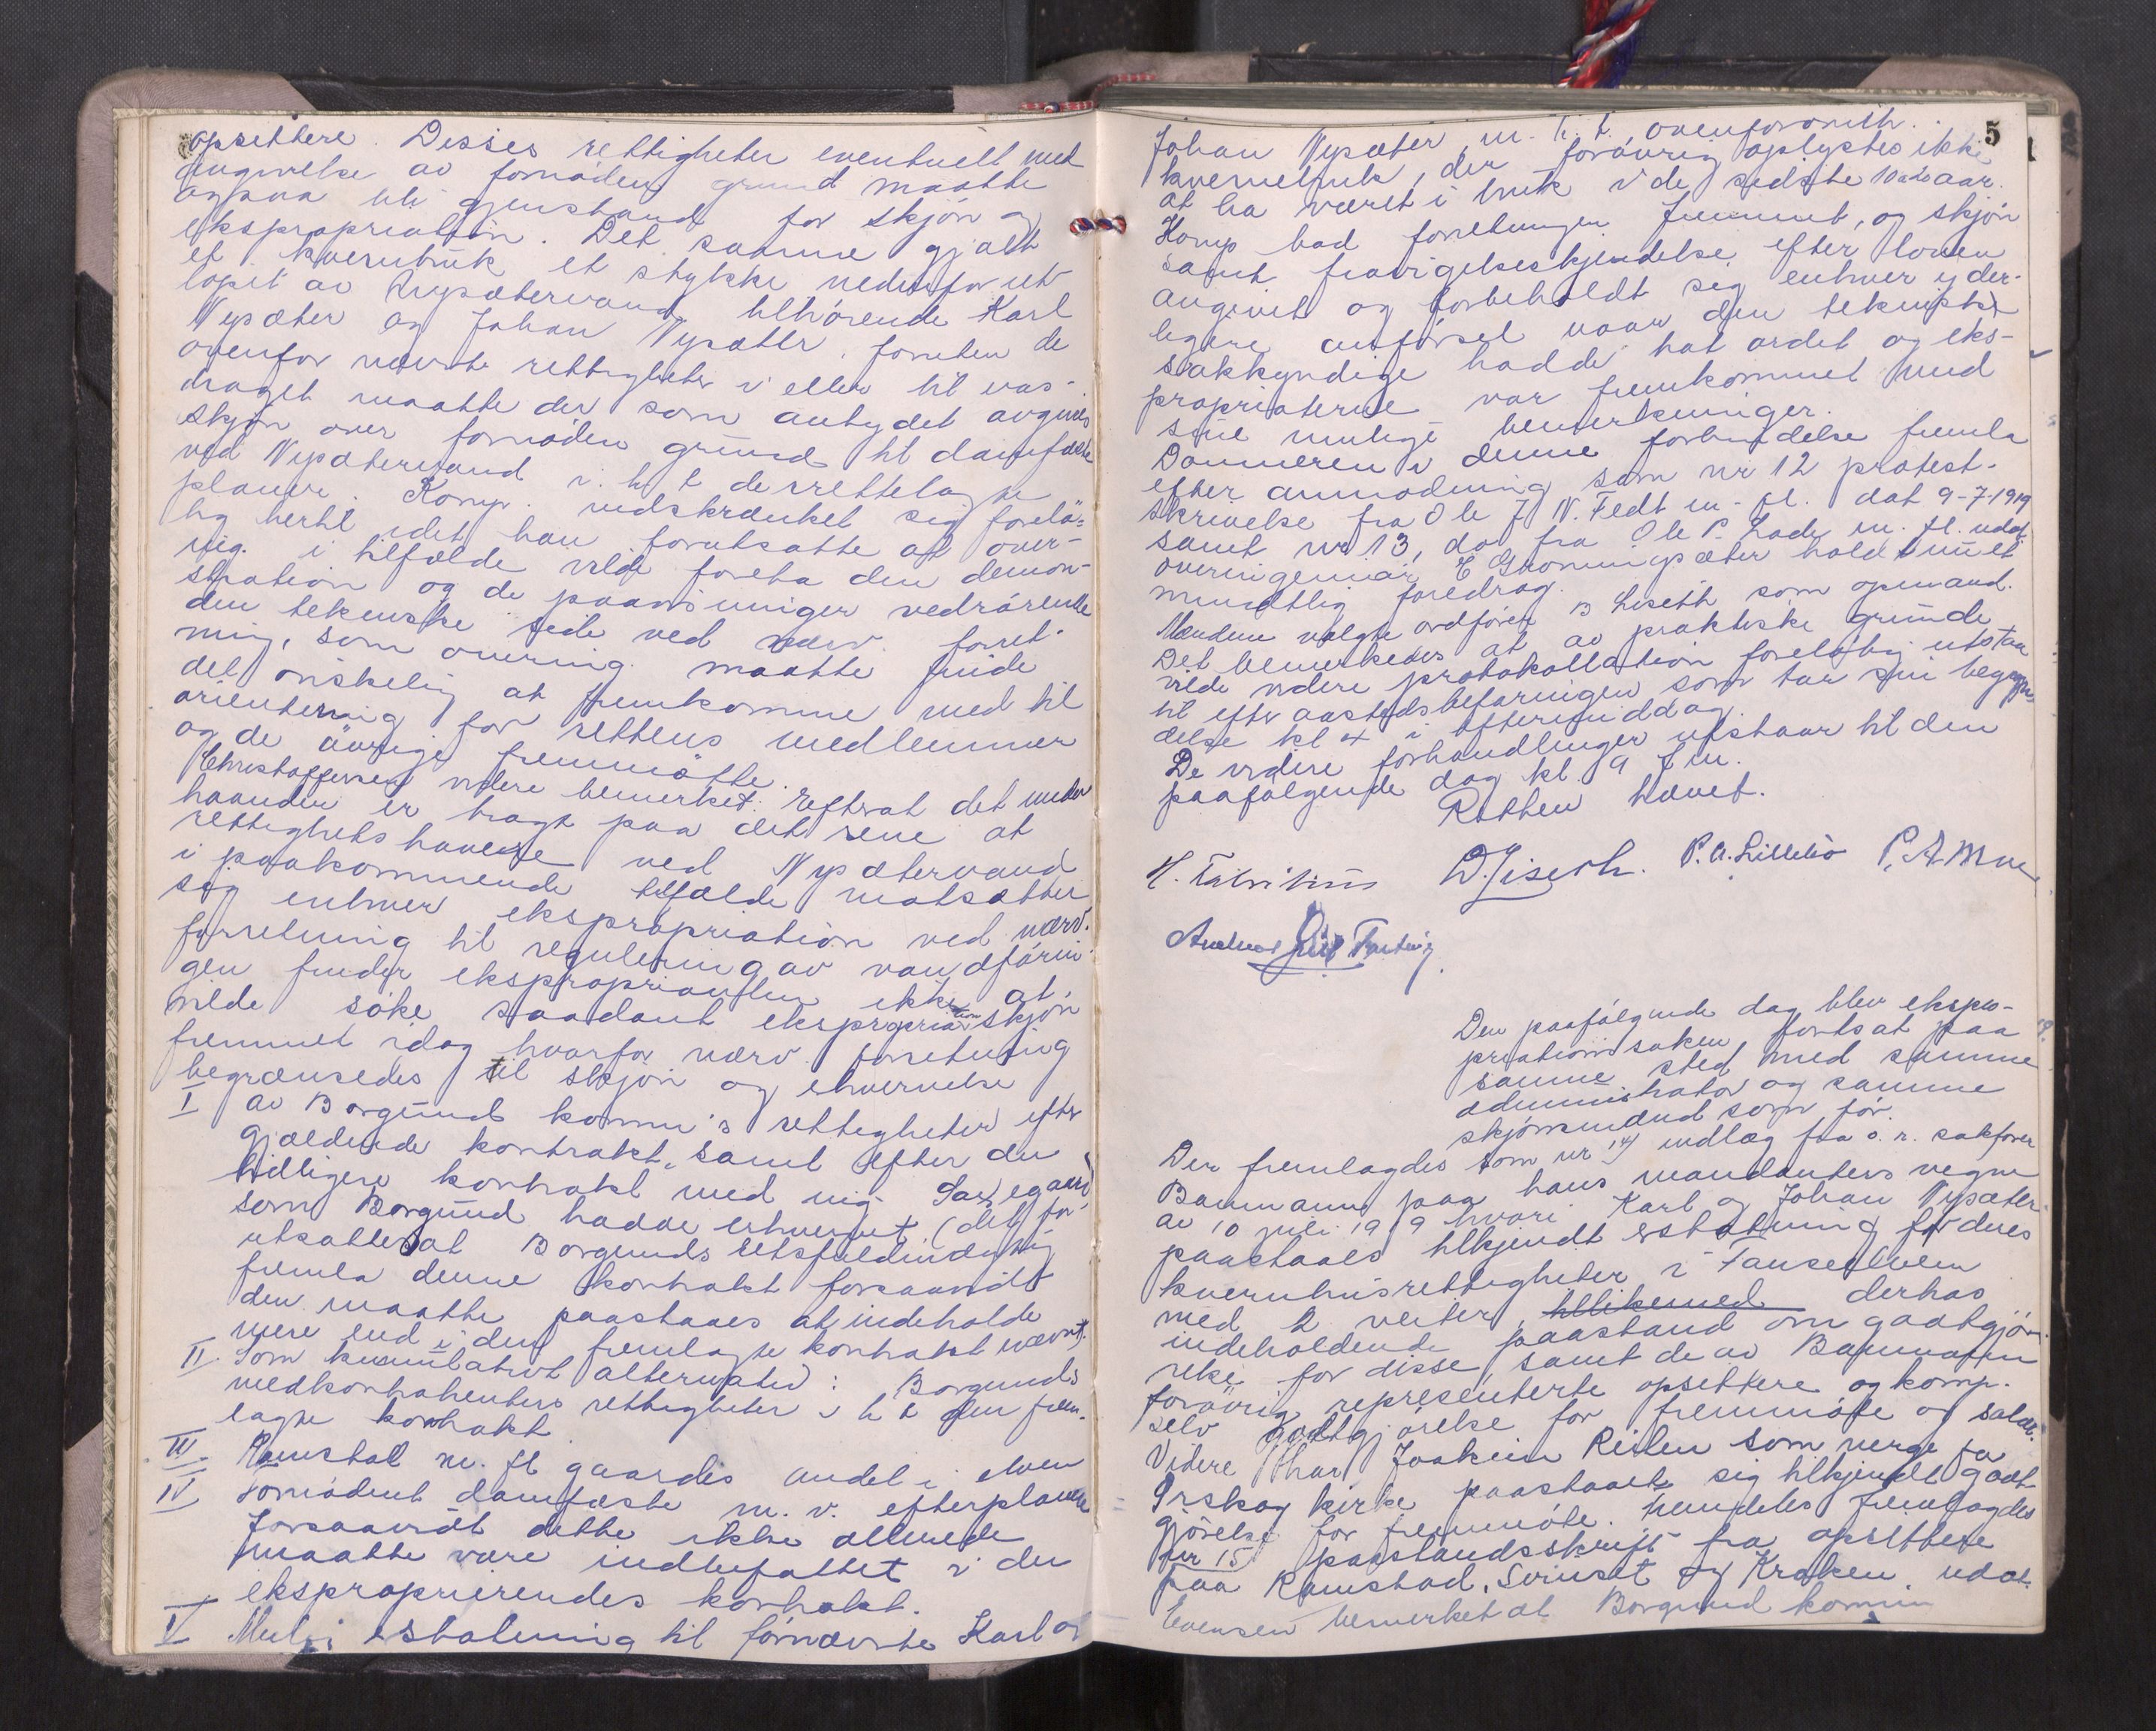 opsittere. Disses rettigheter eventuelt med
angivelse av fornøden grund maatte
ogsaa bli gjenstand for skjøn og
ekspropriation. Det samme gjaldt
et kvernbruk et stykke nedenfor ut-
løpet av Nysætervand tilhørende Karl
Nysæter og Johan Nysæter. Foruten de
ovenfor nævnte rettigheter i eller til vas-
draget maatte der som antydet avgives
skjøn over fornøden grund til damfæste
ved Nysætervand i. h. t. de rettelagte
planer. Komp. indskrænket sig forelø-
big hertil idet han forutsatte at over-
ing. i tilfælde vilde foreta den demon-
stration og de paavisninger vedrørende
den tekniske side ved nærv. forret-
ning, som overing. maatte finde
det ønskelig at fremkomme med til
orientering for rettens medlemmer
og de øvrige fremmøtte.
Christoffersen videre bemerket: Efterat det under
haanden er bragt paa det rene at
rettighetshaverne ved Nysætervand
i paakommende tilfælde motsætter
sig enhver ekspropriation ved nærv.
forretning til regulering av vandførin-
gen finder eksproprianten ikke at
ville søke saadant ekspropriationsskjøn
fremmet idag hvorfor nærv. forretning
begrænsedes til skjøn og erhvervelse
I av Borgund komm's rettigheter efter
gjældende kontrakt, samt efter den
tidligere kontrakt med
som Borgund hadde erhvervet (det for-
utsattes at Borgunds retsfuldmægtig
fremla denne kontrakt forsaavidt
den maatte paastaaes at indeholde
mere end i den fremlagte kontrakt nævnt).
II Som kumulativt alternativ: Borgunds
medkontrahenters rettigheter i. h. t. den frem-
lagte kontrakt.
III. Ramstad m. fl. gaardes andel i elven
IV Fornødent damfæste m. v. efter planene
forsaavidt dette ikke allerede
maatte være indbefattet i den
eksproprierendes kontrakt.
V Mulig erstatning til fornævnte Karl og
5
Johan Nysæter m. h. t. ovenforomth.
kvernebruk, der forøvrig oplystes ikke
at ha været i bruk i de sidste 10 a 20 aar.
Komp bad forretningen fremmet, og skjøn
samt fravigelseskjendelse efter loven
avgivet og forbeholdt sig enhver yder-
ligere anførsel naar den tekniske
sakkyndige hadde hat ordet og eks-
propriaterne var fremkommet med
sine mulige bemerkninger.
Dommeren i denne forbindelse fremla
efter anmodning som nr 12 protest-
skrivelse fra Ole J N. Fedt m. fl. dat 9-7-1919
samt nr 13, do fra Ole P. Lade m. fl. udat.
overingeniør E Grønningsæter holdt unet
mundtlig foredrag.
Mændene valgte ordfører B Liseth som opmand.
Det bemerkedes at av praktiske grunde
vilde videre protokollation foreløbig utstaa
til efter aastedsbefaringen som tar sin begyn-
delse kl 4 i eftermiddag.
De videre forhandlinger utstaar til den
paafølgende dag kl. 9 fm.
Retten hævet.
H. Fabritius D. Liseth. P. A. Lillebø P. A. Moe
Den paafølgende dag blev ekspro-
priationssaken fortsat paa
samme sted med samme
administrator og samme
skjønsmænd som før.
Der fremlagdes som nr 14 indlæg fra o. r. sakfører
Baumann paa hans mandanters vegne
av 10 juli 1919 hvori Karl og Johan Nysæter
paastaaes tilkjendt erstatning for deres
kvernhusrettigheter i Tauselven
med 2 veiter, tillikemed derhos
indeholdende paastand om godtgjø-
relse for disse, samt de av Baumann
forøvrig representerte opsittere og komp.
selv godtgjørelse for fremmøte og salær.
Videre har Joakim Reiten som verge for
Ørskog kirke paastaaet sig tilkjendt godt-
gjørelse for fremmøte. Fremdeles fremlagdes
nr 15 paastandsskrift fra opsittere
paa Ramstad, Svinset og Kraken, udat.
Evensen bemerket at Borgund komm